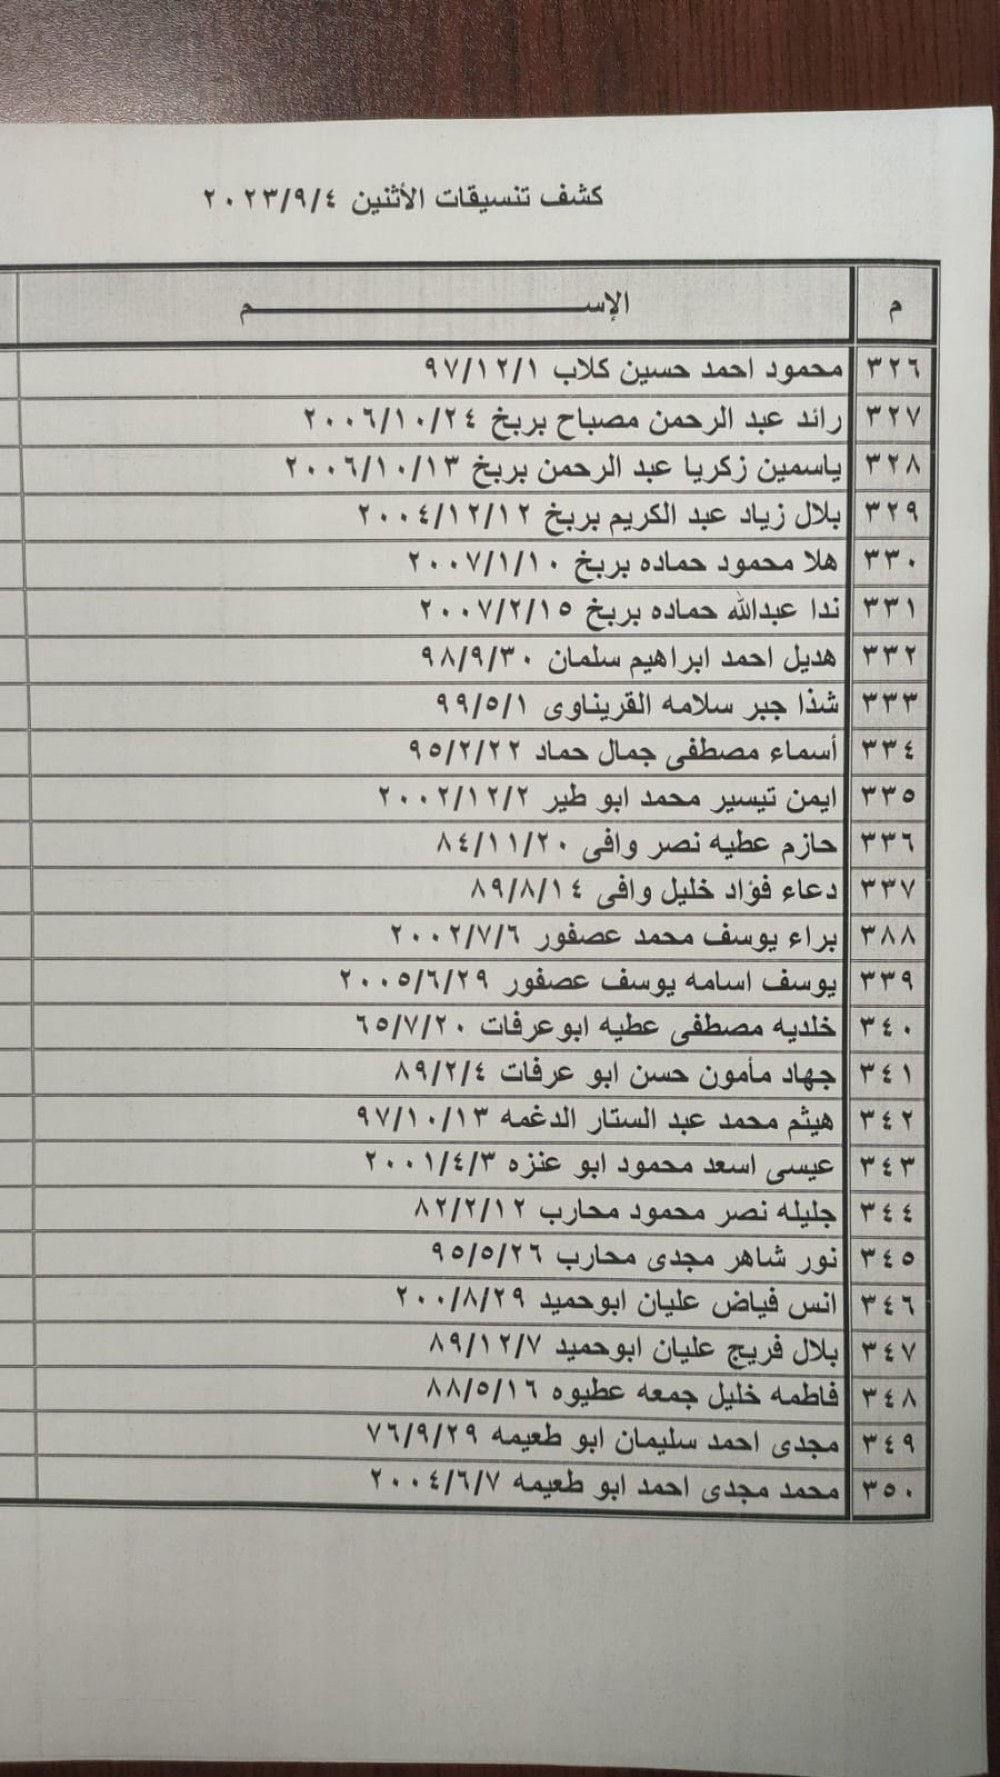 كشف تنسيقات الأثنين ٢٠٢٣/٩/٤
م الإســـــــــــــــــــم
٣٢٦ محمود احمد حسين كلاب ٩٧/١٢/١
٣٢٧ رائد عبد الرحمن مصباح بربخ ٢٠٠٦/١٠/٢٤
٣٢٨ ياسمين زكريا عبد الرحمن بربخ ٢٠٠٦/١٠/١٣
٣٢٩ بلال زياد عبد الكريم بربخ ٢٠٠٤/١٢/١٢
٣٣٠ هلا محمود حماده بربخ ٢٠٠٧/١/١٠
٣٣١ ندا عبدالله حماده بربخ ٢٠٠٧/٢/١٥
٣٣٢ هديل احمد ابراهيم سلمان ٩٨/٩/٣٠
٣٣٣ شذا جبر سلامه القريناوى ٩٩/٥/١
٣٣٤ أسماء مصطفى جمال حماد ٩٥/٢/٢٢
٣٣٥ ايمن تيسير محمد ابو طير ٢٠٠٢/١٢/٢
٣٣٦ حازم عطيه نصر وافى ٨٤/١١/٢٠
٣٣٧ دعاء فؤاد خليل وافى ٨٩/٨/١٤
٣٨٨ براء يوسف محمد عصفور ٢٠٠٢/٧/٦
٣٣٩ يوسف اسامه يوسف عصفور ٢٠٠٥/٦/٢٩
٣٤٠ خلديه مصطفى عطيه ابوعرفات ٦٥/٧/٢٠
٣٤١ جهاد مأمون حسن ابو عرفات ٨٩/٢/٤
٣٤٢ هيثم محمد عبد الستار الدغمه ٩٧/١٠/١٣
٣٤٣ عيسى اسعد محمود ابو عنزه ٢٠٠١/٤/٣
٣٤٤ جليله نصر محمود محارب ٨٢/٢/١٢
٣٤٥ نور شاهر مجدى محارب ٩٥/٥/٢٦
٣٤٦ انس فياض عليان ابوحميد ٢٠٠/٨/٢٩
٣٤٧ بلال فريج عليان ابوحميد ٨٩/١٢/٧
٣٤٨ فاطمه خليل جمعه عطيوه ٨٨/٥/١٦
٣٤٩ مجدى احمد سليمان ابو طعيمه ٧٦/٩/٢٩
٣٥٠ محمد مجدى احمد ابو طعيمه ٢٠٠٤/٦/٧